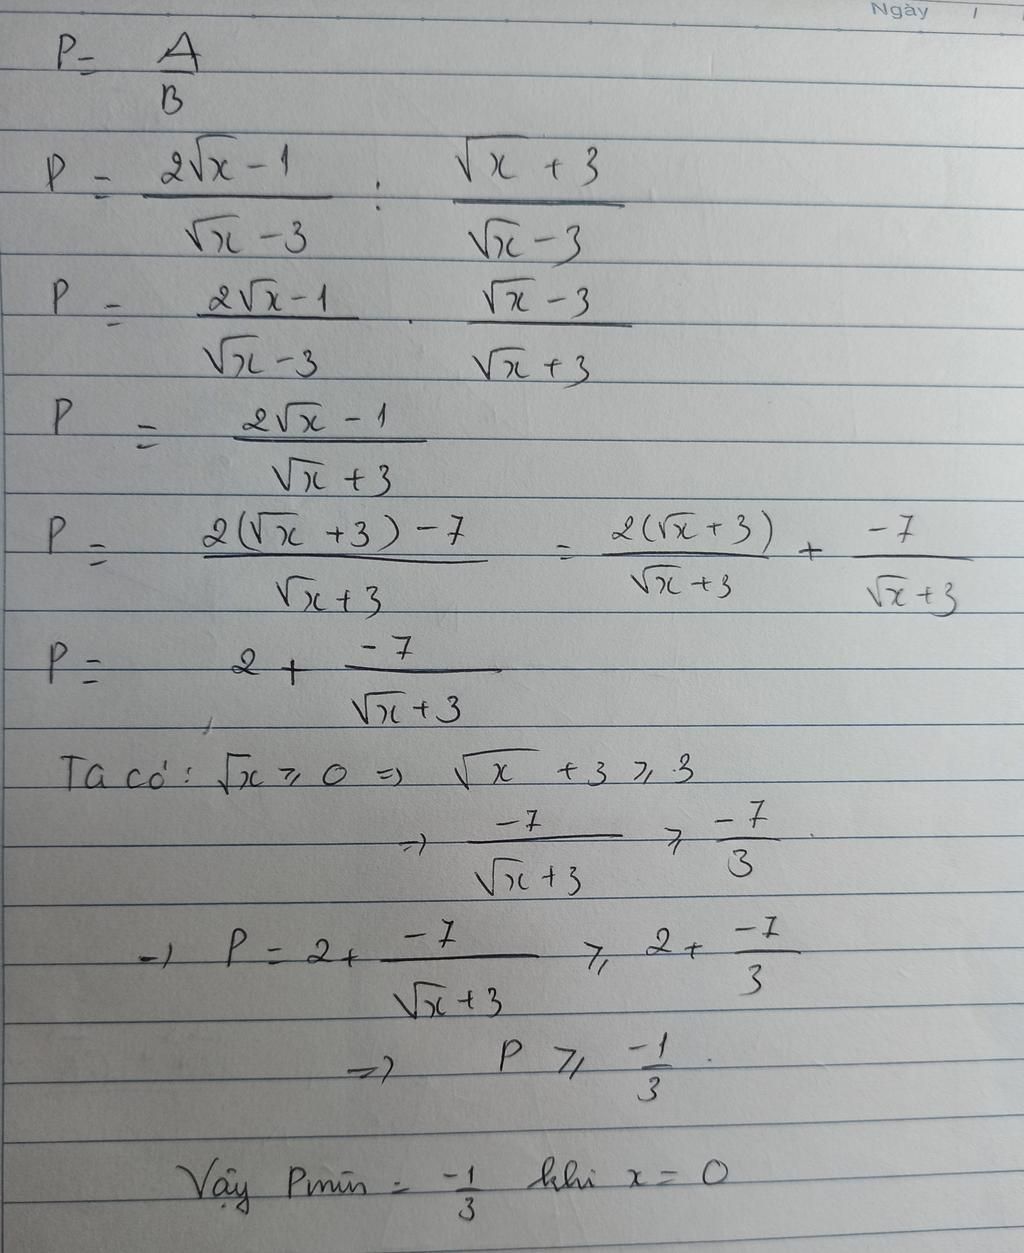 Ngày /
P = A/B
P = (2√x - 1)/(√x - 3) : (√x + 3)/(√x - 3)
P = (2√x - 1)/(√x - 3) . (√x - 3)/(√x + 3)
P = (2√x - 1)/(√x + 3)
P = (2(√x + 3) - 7)/(√x + 3) = 2(√x + 3)/(√x + 3) + -7/(√x + 3)
P = 2 + -7/(√x + 3)
Ta có: √x ⩾ 0 => √x + 3 ⩾ 3
=> -7/(√x + 3) ⩾ -7/3
=> P = 2 + -7/(√x + 3) ⩾ 2 + -7/3
=> P ⩾ -1/3.
Vậy Pmin = -1/3 khi x = 0